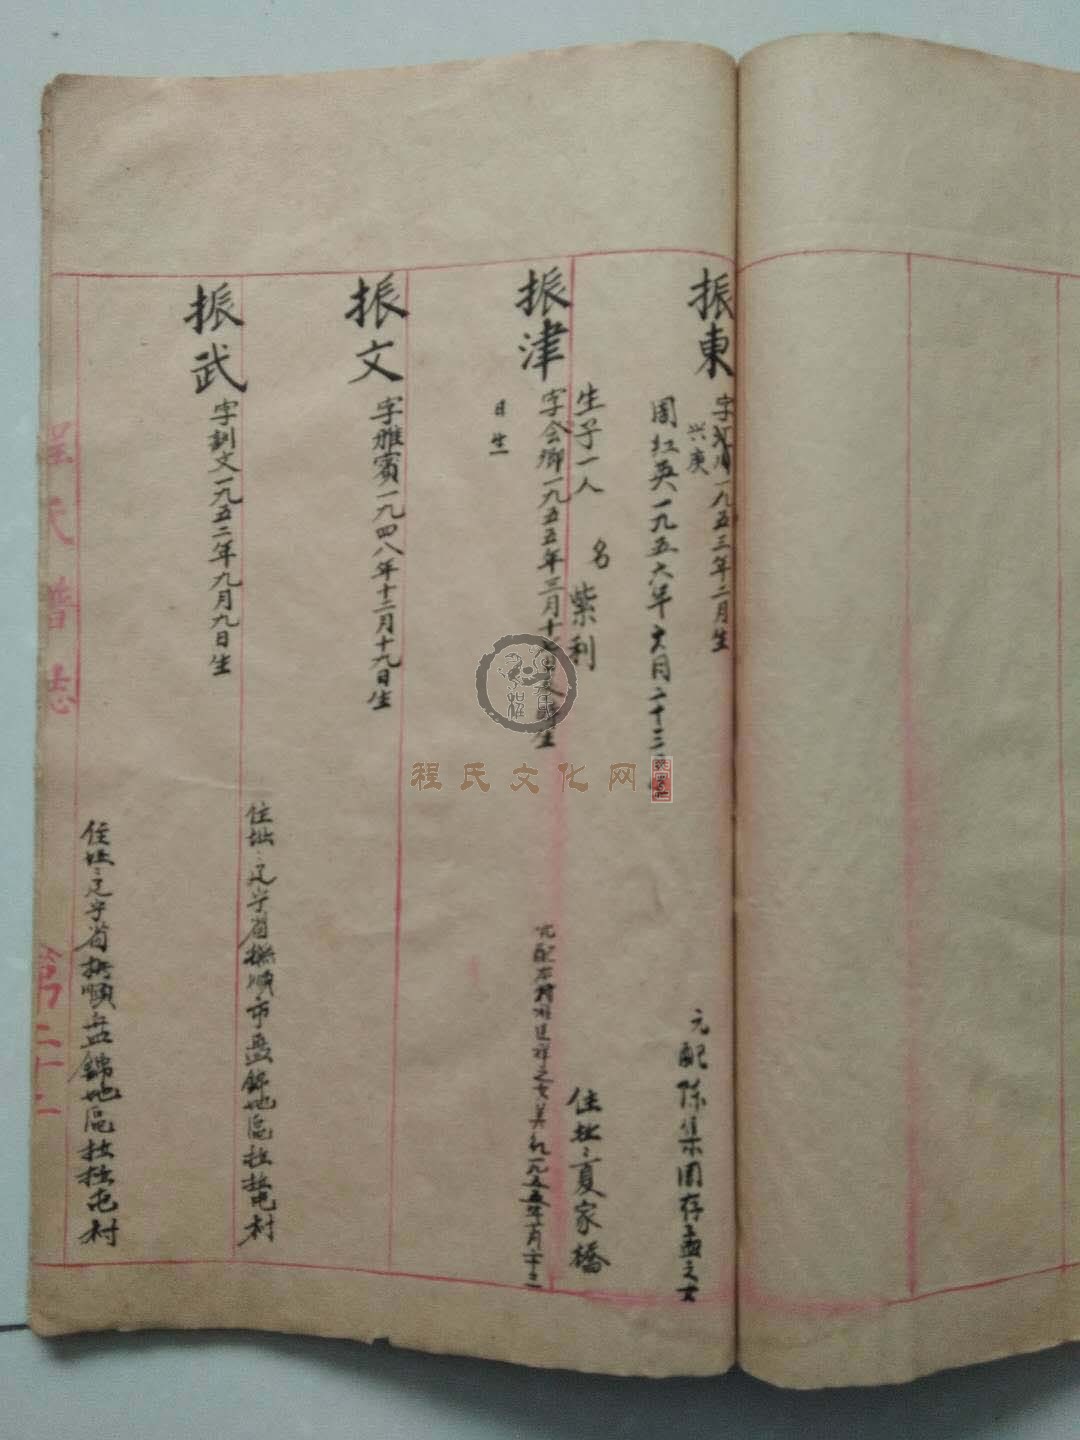 振東
字 一九五三年二月生
兴庚
元配陈集周存孟之女
周红英一九五六年 月二十三
生子一人 名 紫利
住址：夏家橋
振津
字会卿一九五五年三月十 生
元配 村 之女美 一九五五年 月 十
日生
振文
字雅賓一九四八年十二月十九日生
住址：辽宁省撫順市盘錦地區拉拉屯村
振武
字訓文一九五二年九月九日生
住址：辽宁省抚順盘錦地區拉拉屯村
程氏譜志
第二十二
程氏文化网